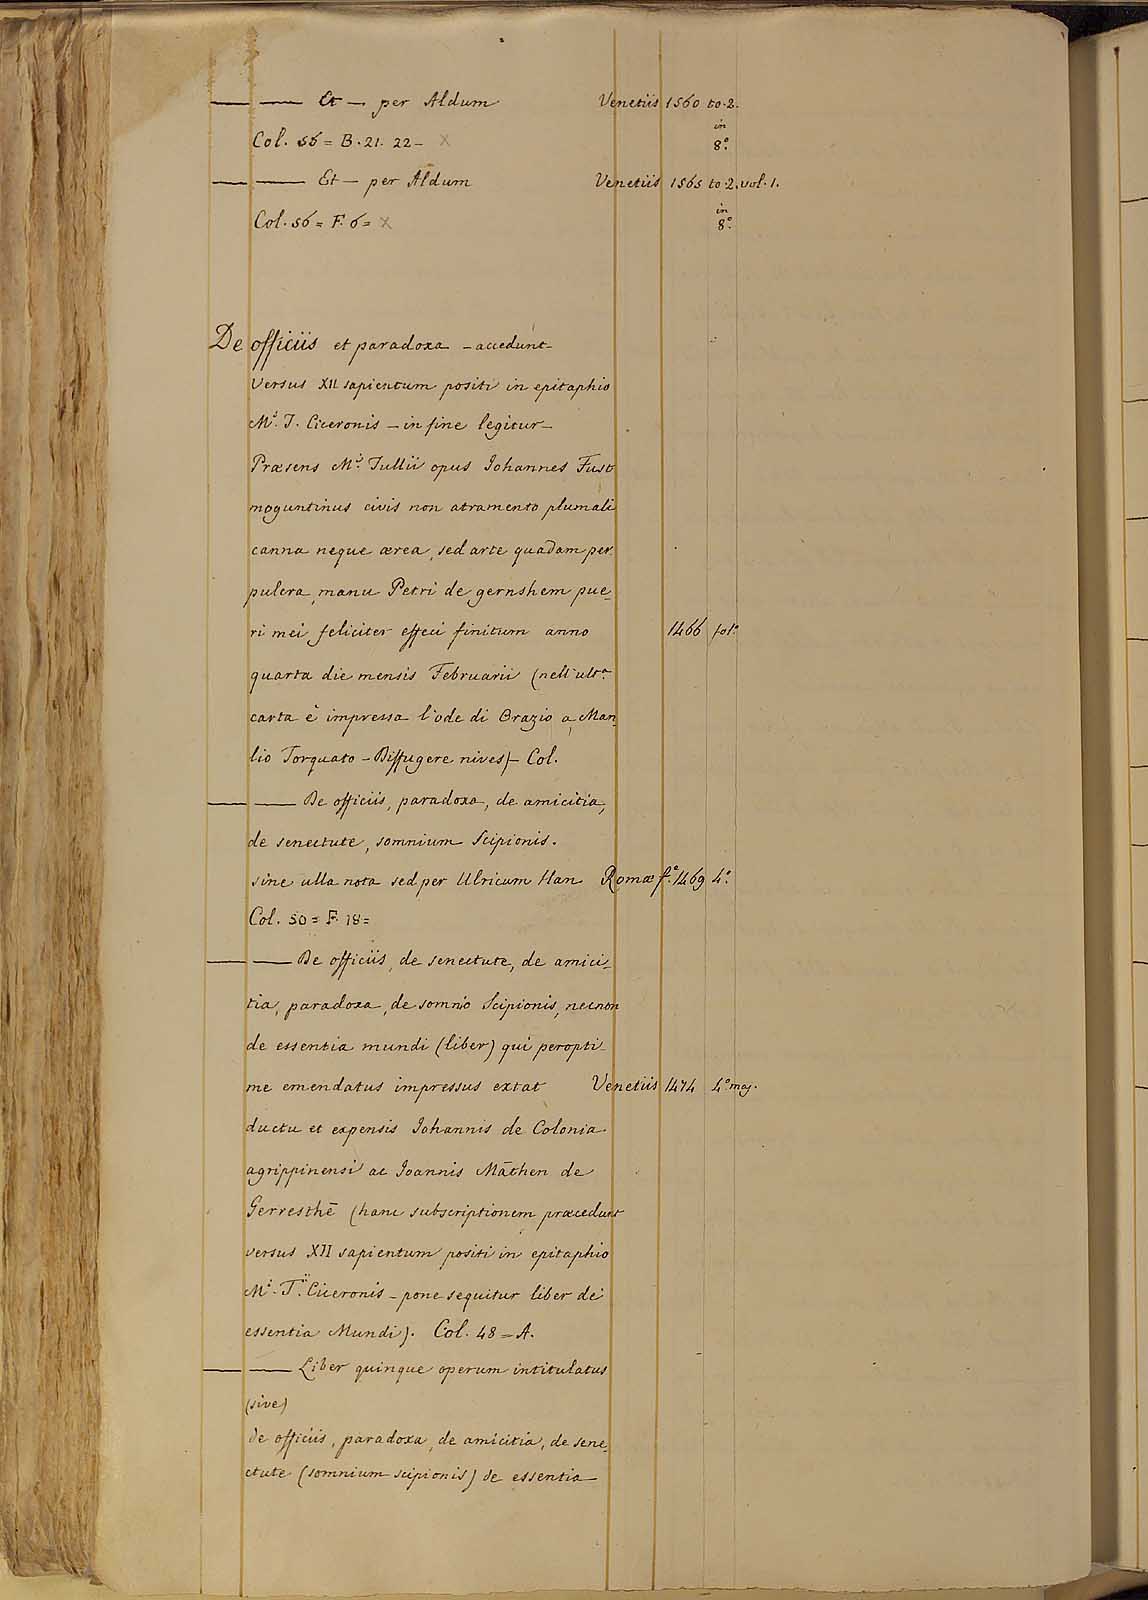 — — Et — per Aldum Venetiis 1560 to. 2.
in
Col. 56 = B. 21. 22 — X 8°.
— — Et — per Aldum Venetiis 1565 to. 2. vol. 1.
in
Col. 56 = F. 6 = X 8°.
De officiis et paradoxa — accedunt —
versus XII sapientum positi in epitaphio
M.i T. Ciceronis — in fine legitur —
Præsens M.i Tullii opus Johannes Fust
moguntinus civis non atramento plumali
canna neque ærea, sed arte quadam per
pulcra, manu Petri de gernshem pue_
ri mei feliciter effeci finitum anno 1466 fol.°
quarta die mensis Februarii (nell' ult.a
carta è impressa l'ode di Orazio a Man_
lio Torquato — Diffugere nives) — Col.
— — De officiis, paradoxa, de amicitia,
de senectute, somnium Scipionis.
sine ulla nota sed per Ulricum Han Romæ f.° 1469 4°.
Col. 50 = F. 18 =
— — De officiis, de senectute, de amici_
tia, paradoxa, de somnio Scipionis, necnon
de essentia mundi (liber) qui peropti_
me emendatus impressus extat Venetiis 1474 4.° maj.
ductu et expensis Johannis de Colonia
agrippinensi ac Joannis Māthen de
Gerresthē (hanc subscriptionem præcedunt
versus XII sapientum positi in epitaphio
M.i T.ii Ciceronis — pone sequitur liber de
essentia Mundi). Col. 48 = A.
— — Liber quinque operum intitulatus
(sive)
De officiis, paradoxa, de amicitia, de sene_
ctute (somnium scipionis) de essentia